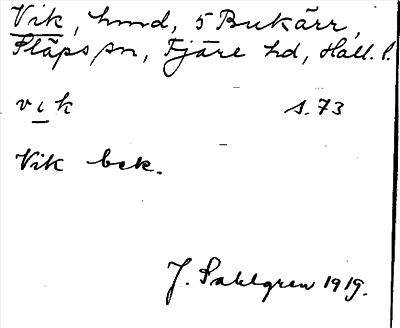 Vik, hmd, 5 Bukärr,
Släps sn, Fjäre hd, Hall. l.
vik s. 73
Vik bek.
J. Sahlgren 1919.